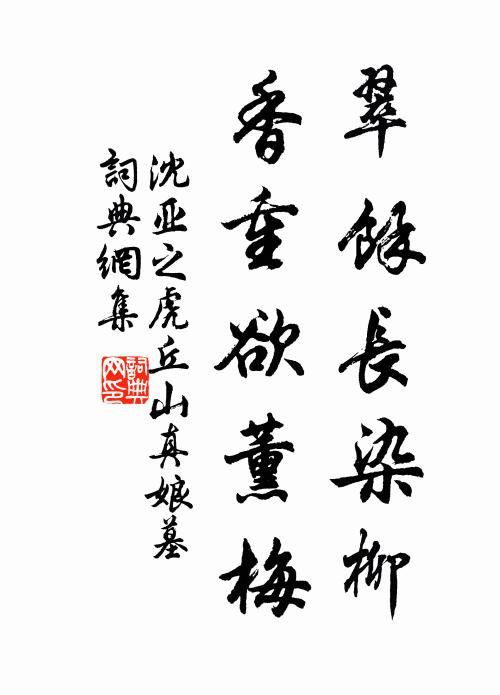 翠餘長染柳
香重欲薰梅
沈亚之虎丘山真娘墓
詞典網集
詞典
网印